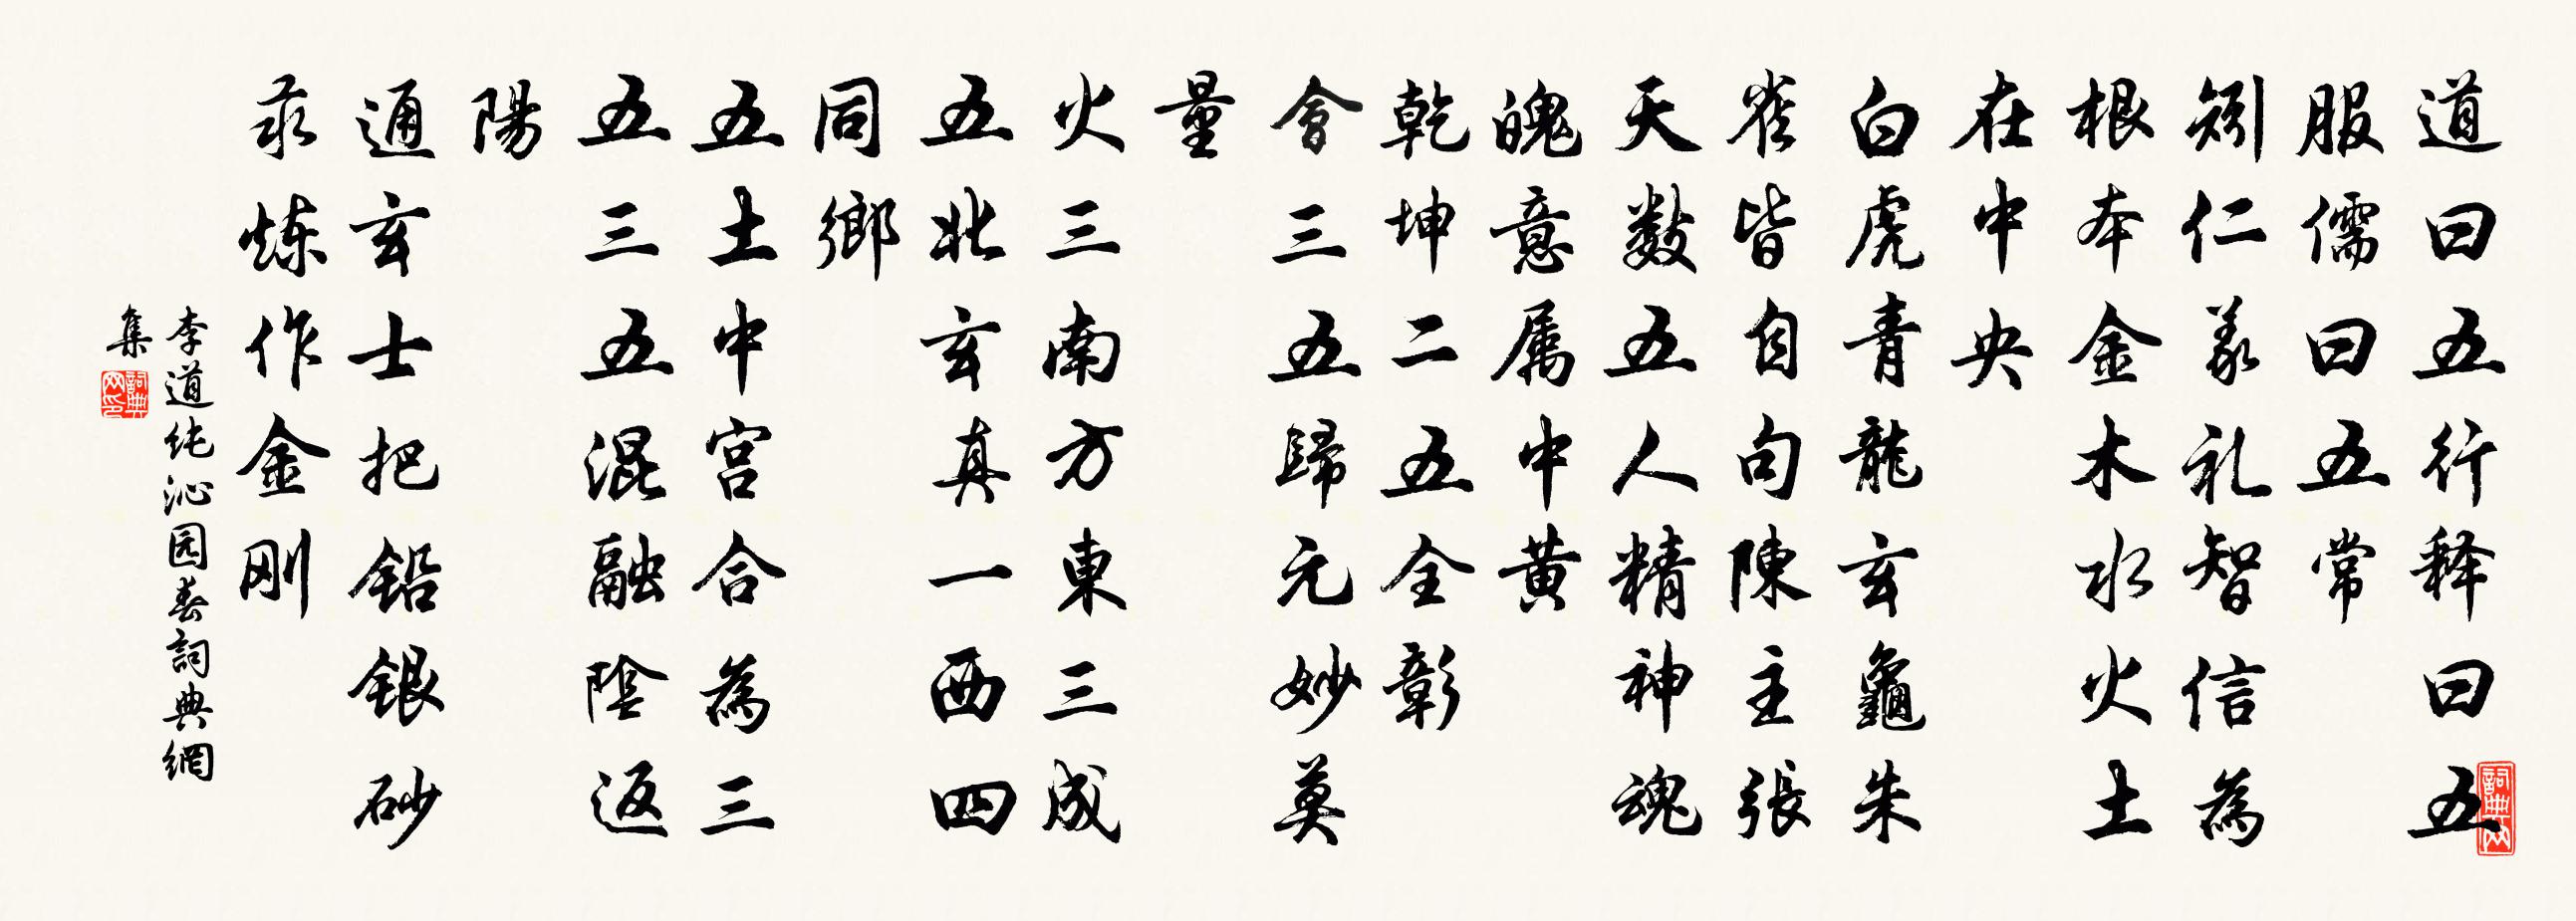 道曰五行释曰五
服儒曰五常
矧仁义礼智信為
根本金木水火土
在中央
白虎青龍玄龜朱
雀皆自句陳主張
天数五人精神魂
魄意属中黄
乾坤二五全彰
會三五歸元妙莫
量
火三南方東三成
五北玄真一西四
同鄉
五土中宫合為三
五三五混融陰返
陽
通玄士把铅银砂
汞炼作金刚
李道纯沁园春詞典網
集
詞典网
詞典网印